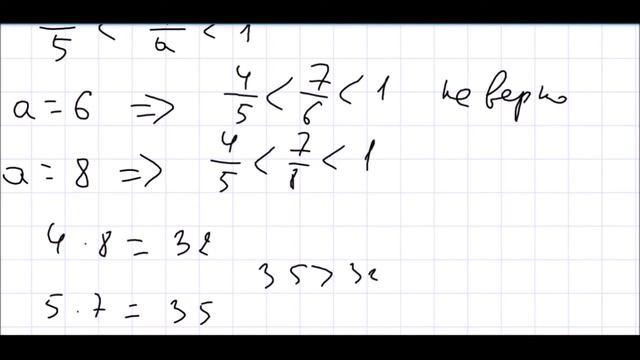 5 < a < 1
a = 6 => 4/5 < 7/6 < 1 не верно
a = 8 => 4/5 < 7/8 < 1
4 · 8 = 32
35 > 32
5 · 7 = 35